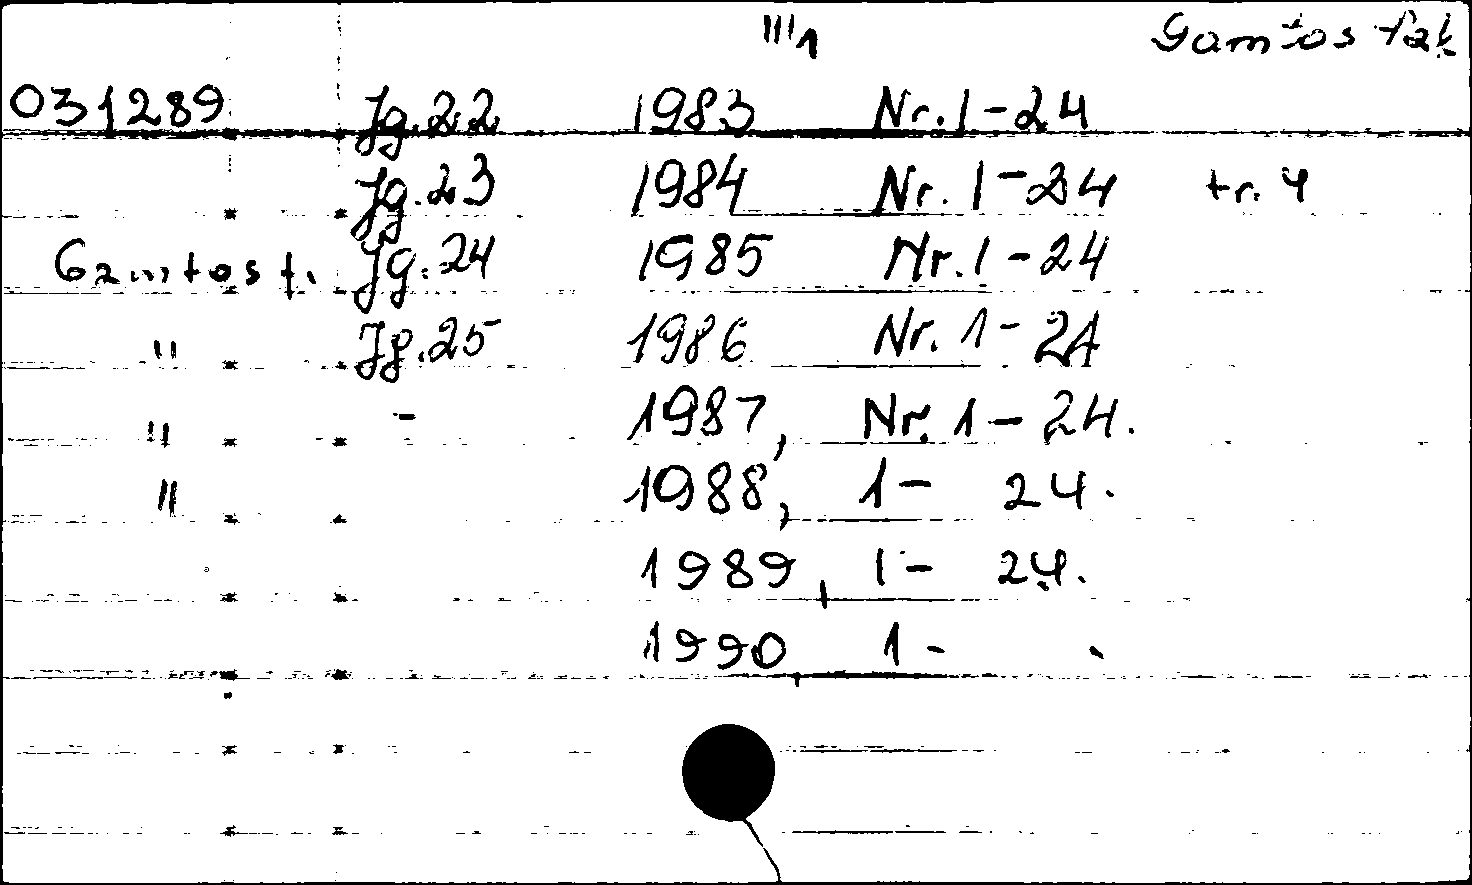 III 1 Gamtos fak.
031289 Jg. 22 1983 Nr. 1-24
Jg. 23 1984 Nr. 1-24 tr. 4
Gamtos f. Jg. 24 1985 Nr. 1-24
" Jg. 25 1986 Nr. 1-24
" - 1987, Nr. 1-24.
" 1988, 1- 24.
1989, 1- 24.
1990, 1- .